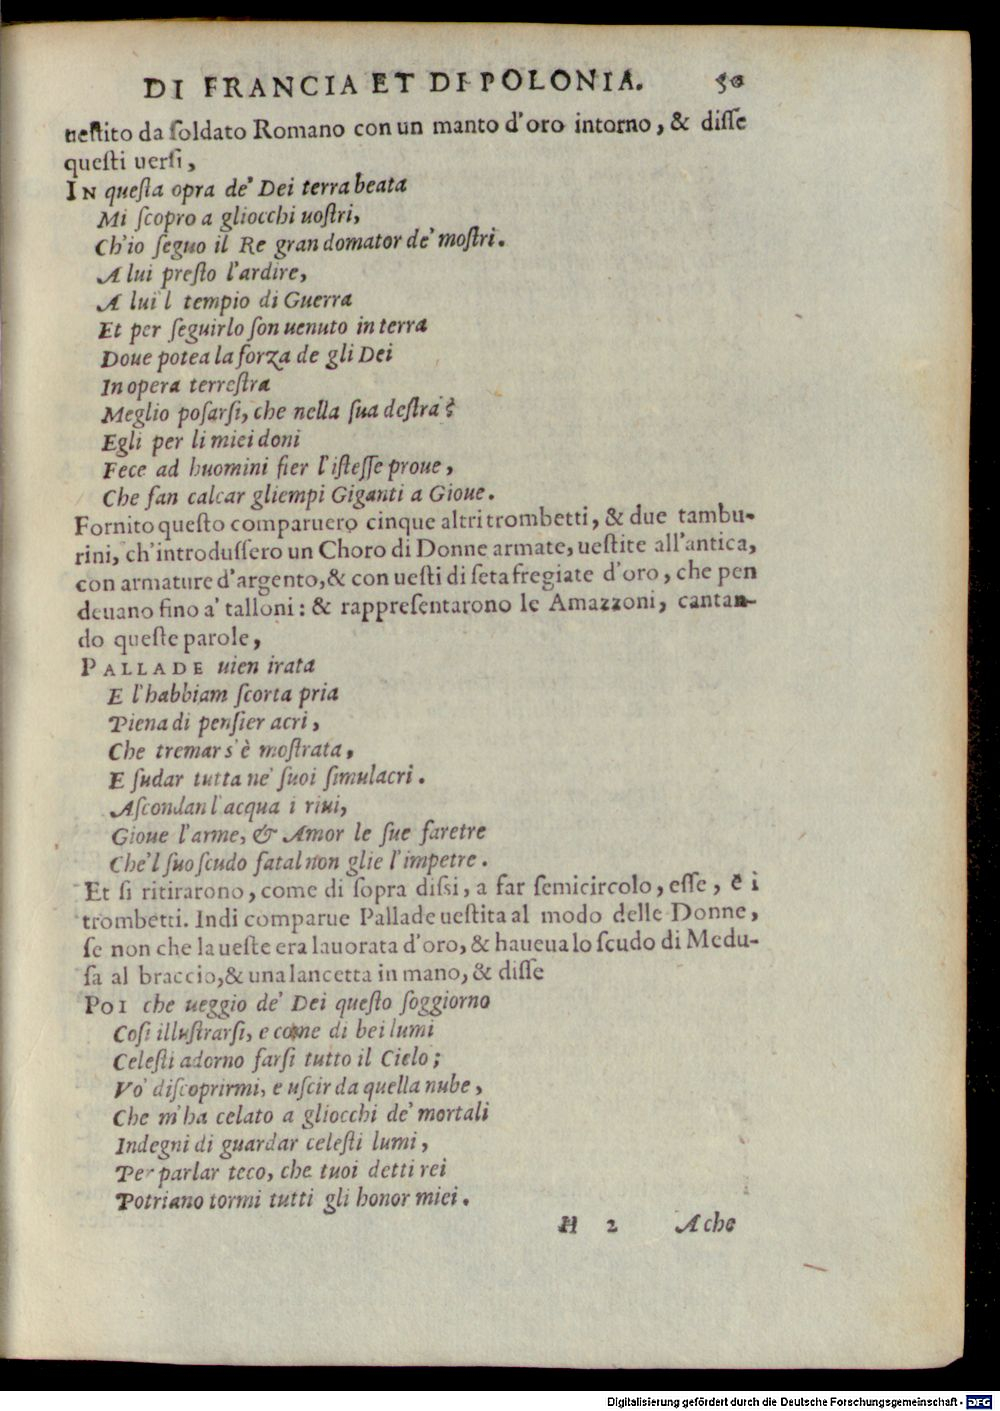 DI FRANCIA ET DI POLONIA. 50
uestito da soldato Romano con un manto d'oro intorno, & disse
questi uersi,
IN questa opra de' Dei terra beata
Mi scopro a gliocchi uostri,
Ch'io seguo il Re gran domator de' mostri.
A lui presto l'ardire,
A lui'l tempio di Guerra
Et per seguirlo son uenuto in terra
Doue potea la forza de gli Dei
In opera terrestra
Meglio posarsi, che nella sua destra?
Egli per li miei doni
Fece ad huomini fier l'istesse proue,
Che fan calcar gliempi Giganti a Gioue.
Fornito questo comparuero cinque altri trombetti, & due tambu-
rini, ch'introdussero un Choro di Donne armate, uestite all'antica,
con armature d'argento, & con uesti di seta fregiate d'oro, che pen
deuano fino a' talloni: & rappresentarono le Amazzoni, cantan-
do queste parole,
PALLADE uien irata
E l'habbiam scorta pria
Piena di pensier acri,
Che tremar s'è mostrata,
E sudar tutta ne' suoi simulacri.
Ascondan l'acqua i riui,
Gioue l'arme, & Amor le sue faretre
Che'l suo scudo fatal non glie l'impetre.
Et si ritirarono, come di sopra dissi, a far semicircolo, esse, e i
trombetti. Indi comparue Pallade uestita al modo delle Donne,
se non che la ueste era lauorata d'oro, & haueua lo scudo di Medu-
sa al braccio, & una lancetta in mano, & disse
POI che ueggio de' Dei questo soggiorno
Cosi illustrarsi, e come di bei lumi
Celesti adorno farsi tutto il Cielo;
Vo' discoprirmi, e uscir da quella nube,
Che m'ha celato a gliocchi de' mortali
Indegni di guardar celesti lumi,
Per parlar teco, che tuoi detti rei
Potriano tormi tutti gli honor miei.
H 2 A che
Digitalisierung gefördert durch die Deutsche Forschungsgemeinschaft - DFG